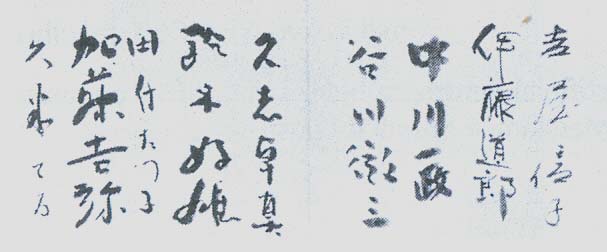 吉屋信子
伊藤道郎
中川一政
谷川徹三
久志卓真
鈴木
田付たつ子
加藤吉弥
久米